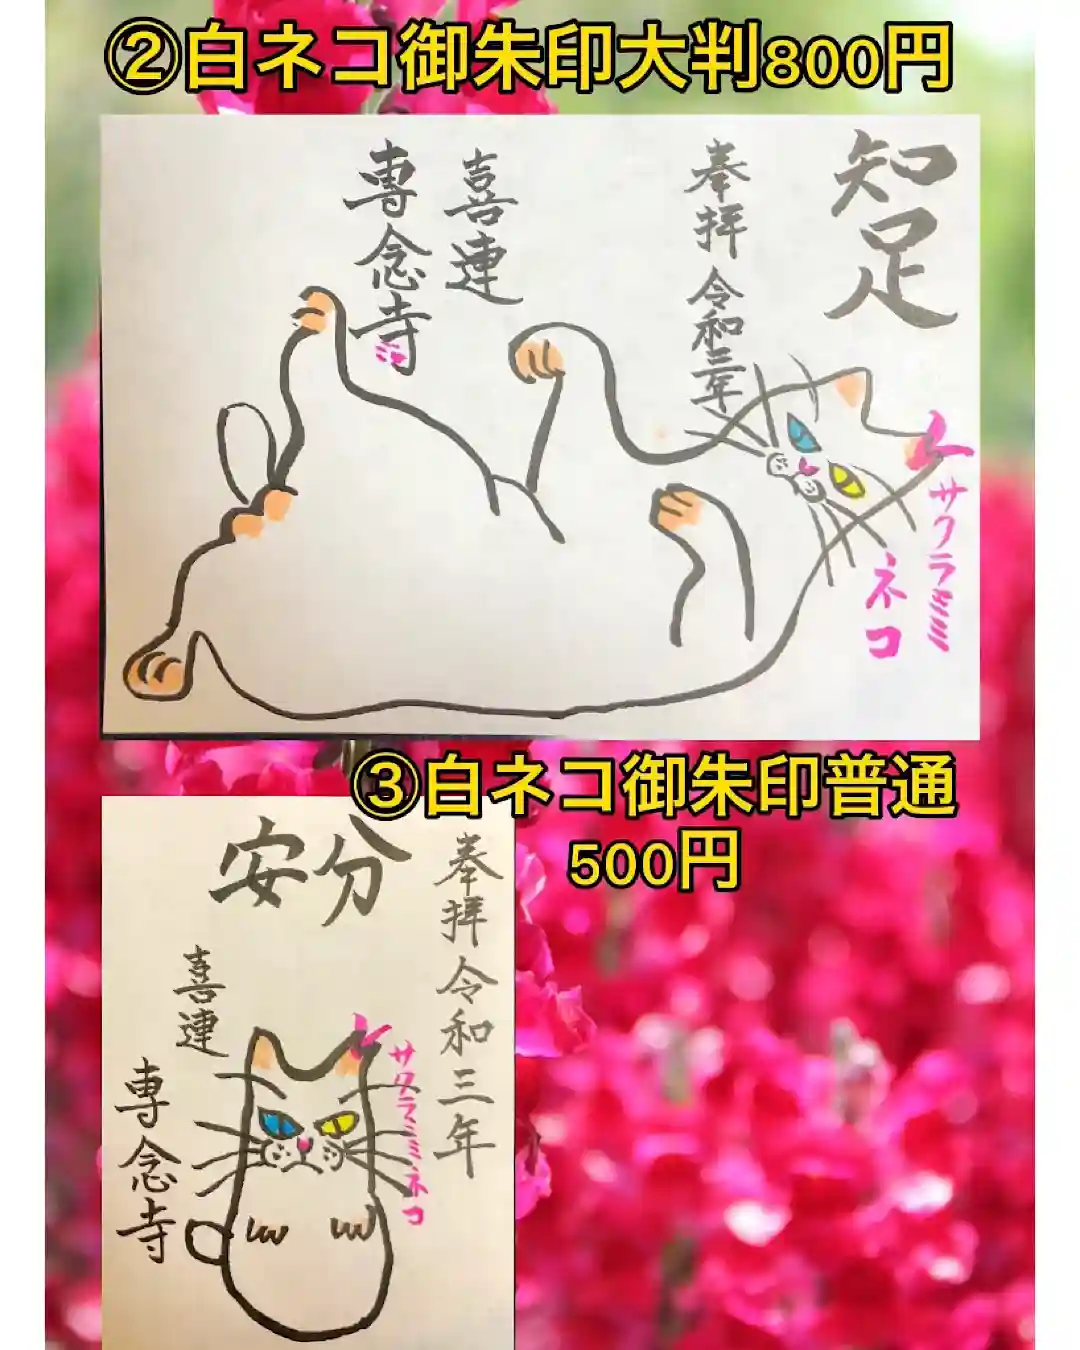 ②白ネコ御朱印大判800円
知足
奉拝 令和三年
喜連
専念寺
サクラミミ
ネコ
③白ネコ御朱印普通
500円
奉拝 令和三年
安分
喜連
専念寺
サクラミミネコ